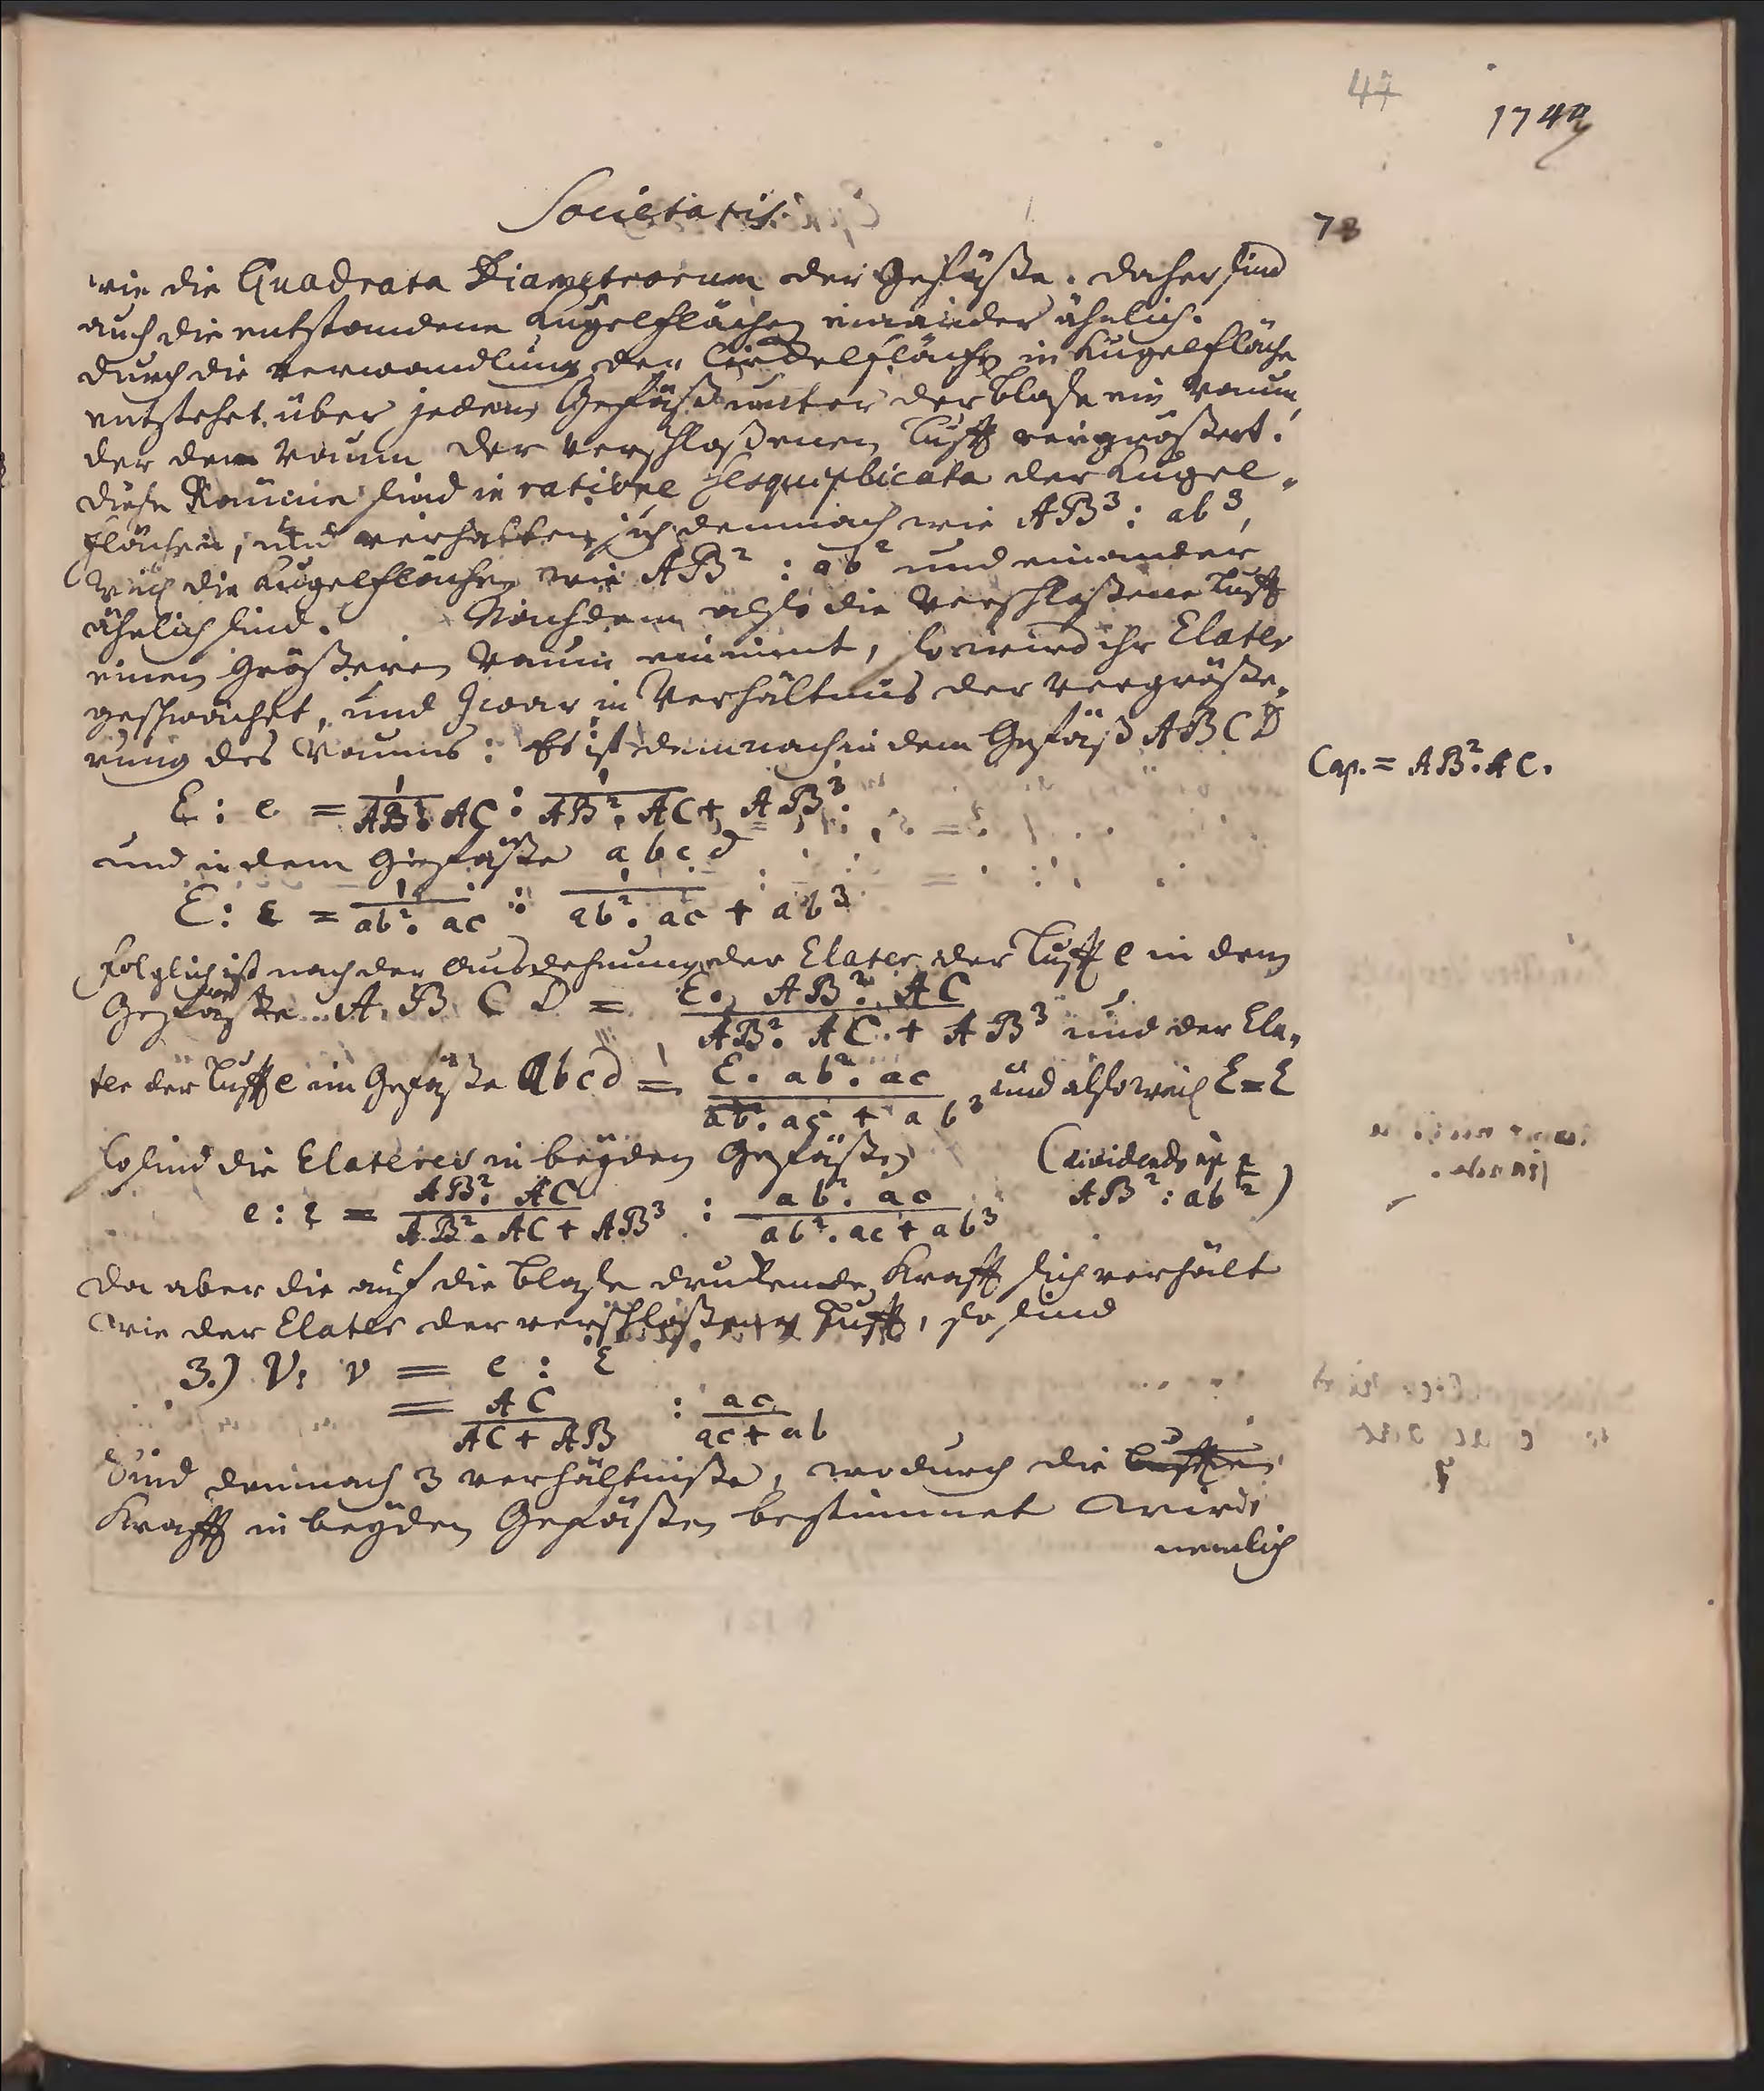 47
1749
Societatis.
73
wie die Quadrata Diametrorum der Gefäße. daher sind
auch die entstandene Kugelflächen einander ähnlich.
durch die verwandlung der Cirkelfläche in Kugelfläche
entstehet über jedem Gefäß unter der blase ein Raum,
der dem Raum der verschloßenen Lufft vergrößert.
diese Räume sind in ratione sesquiplicata der Kugel-
flächen, und verhalten sich demnach wie AB³ : ab³,
weil die Kugelflächen wie AB² : ab² und einander
ähnlich sind. Nachdem also die verschloßene Lufft
einen größeren Raum einnimt, so wird ihr Elater
geschwächet, und zwar in Verhältnus der vergröße-
rung des Raums: Es ist demnach in dem Gefäß ABCD
Cap. = AB². AC.
E : e = 1/AB². AC : 1/AB². AC + AB³.
und in dem Gefäße abcd
E : ε = 1/ab². ac : 1/ab². ac + ab³
folglich ist nach der Ausdehnung der Elater der Lufft e in dem
Gefäße ABCD = E. AB². AC / AB². AC + AB³ und der Ela-
ter der Lufft e im Gefäße abcd = E. ab². ac / ab². ac + ab³ und also weil E = E
so sind die Elateres in beyden Gefäßen (dividendo per
e : ε = AB². AC / AB². AC + AB³ : ab². ac / ab². ac + ab³ AB² : ab²)
da aber die auf die blase druckende Krafft sich verhält
wie der Elater der verschloßenen Lufft, so sind
3.) V : v = e : ε
= AC / AC + AB : ac / ac + ab
Sind demnach 3 verhältniße, wodurch die
Krafft in beyden Gefäßen bestimmet wird,
nemlich